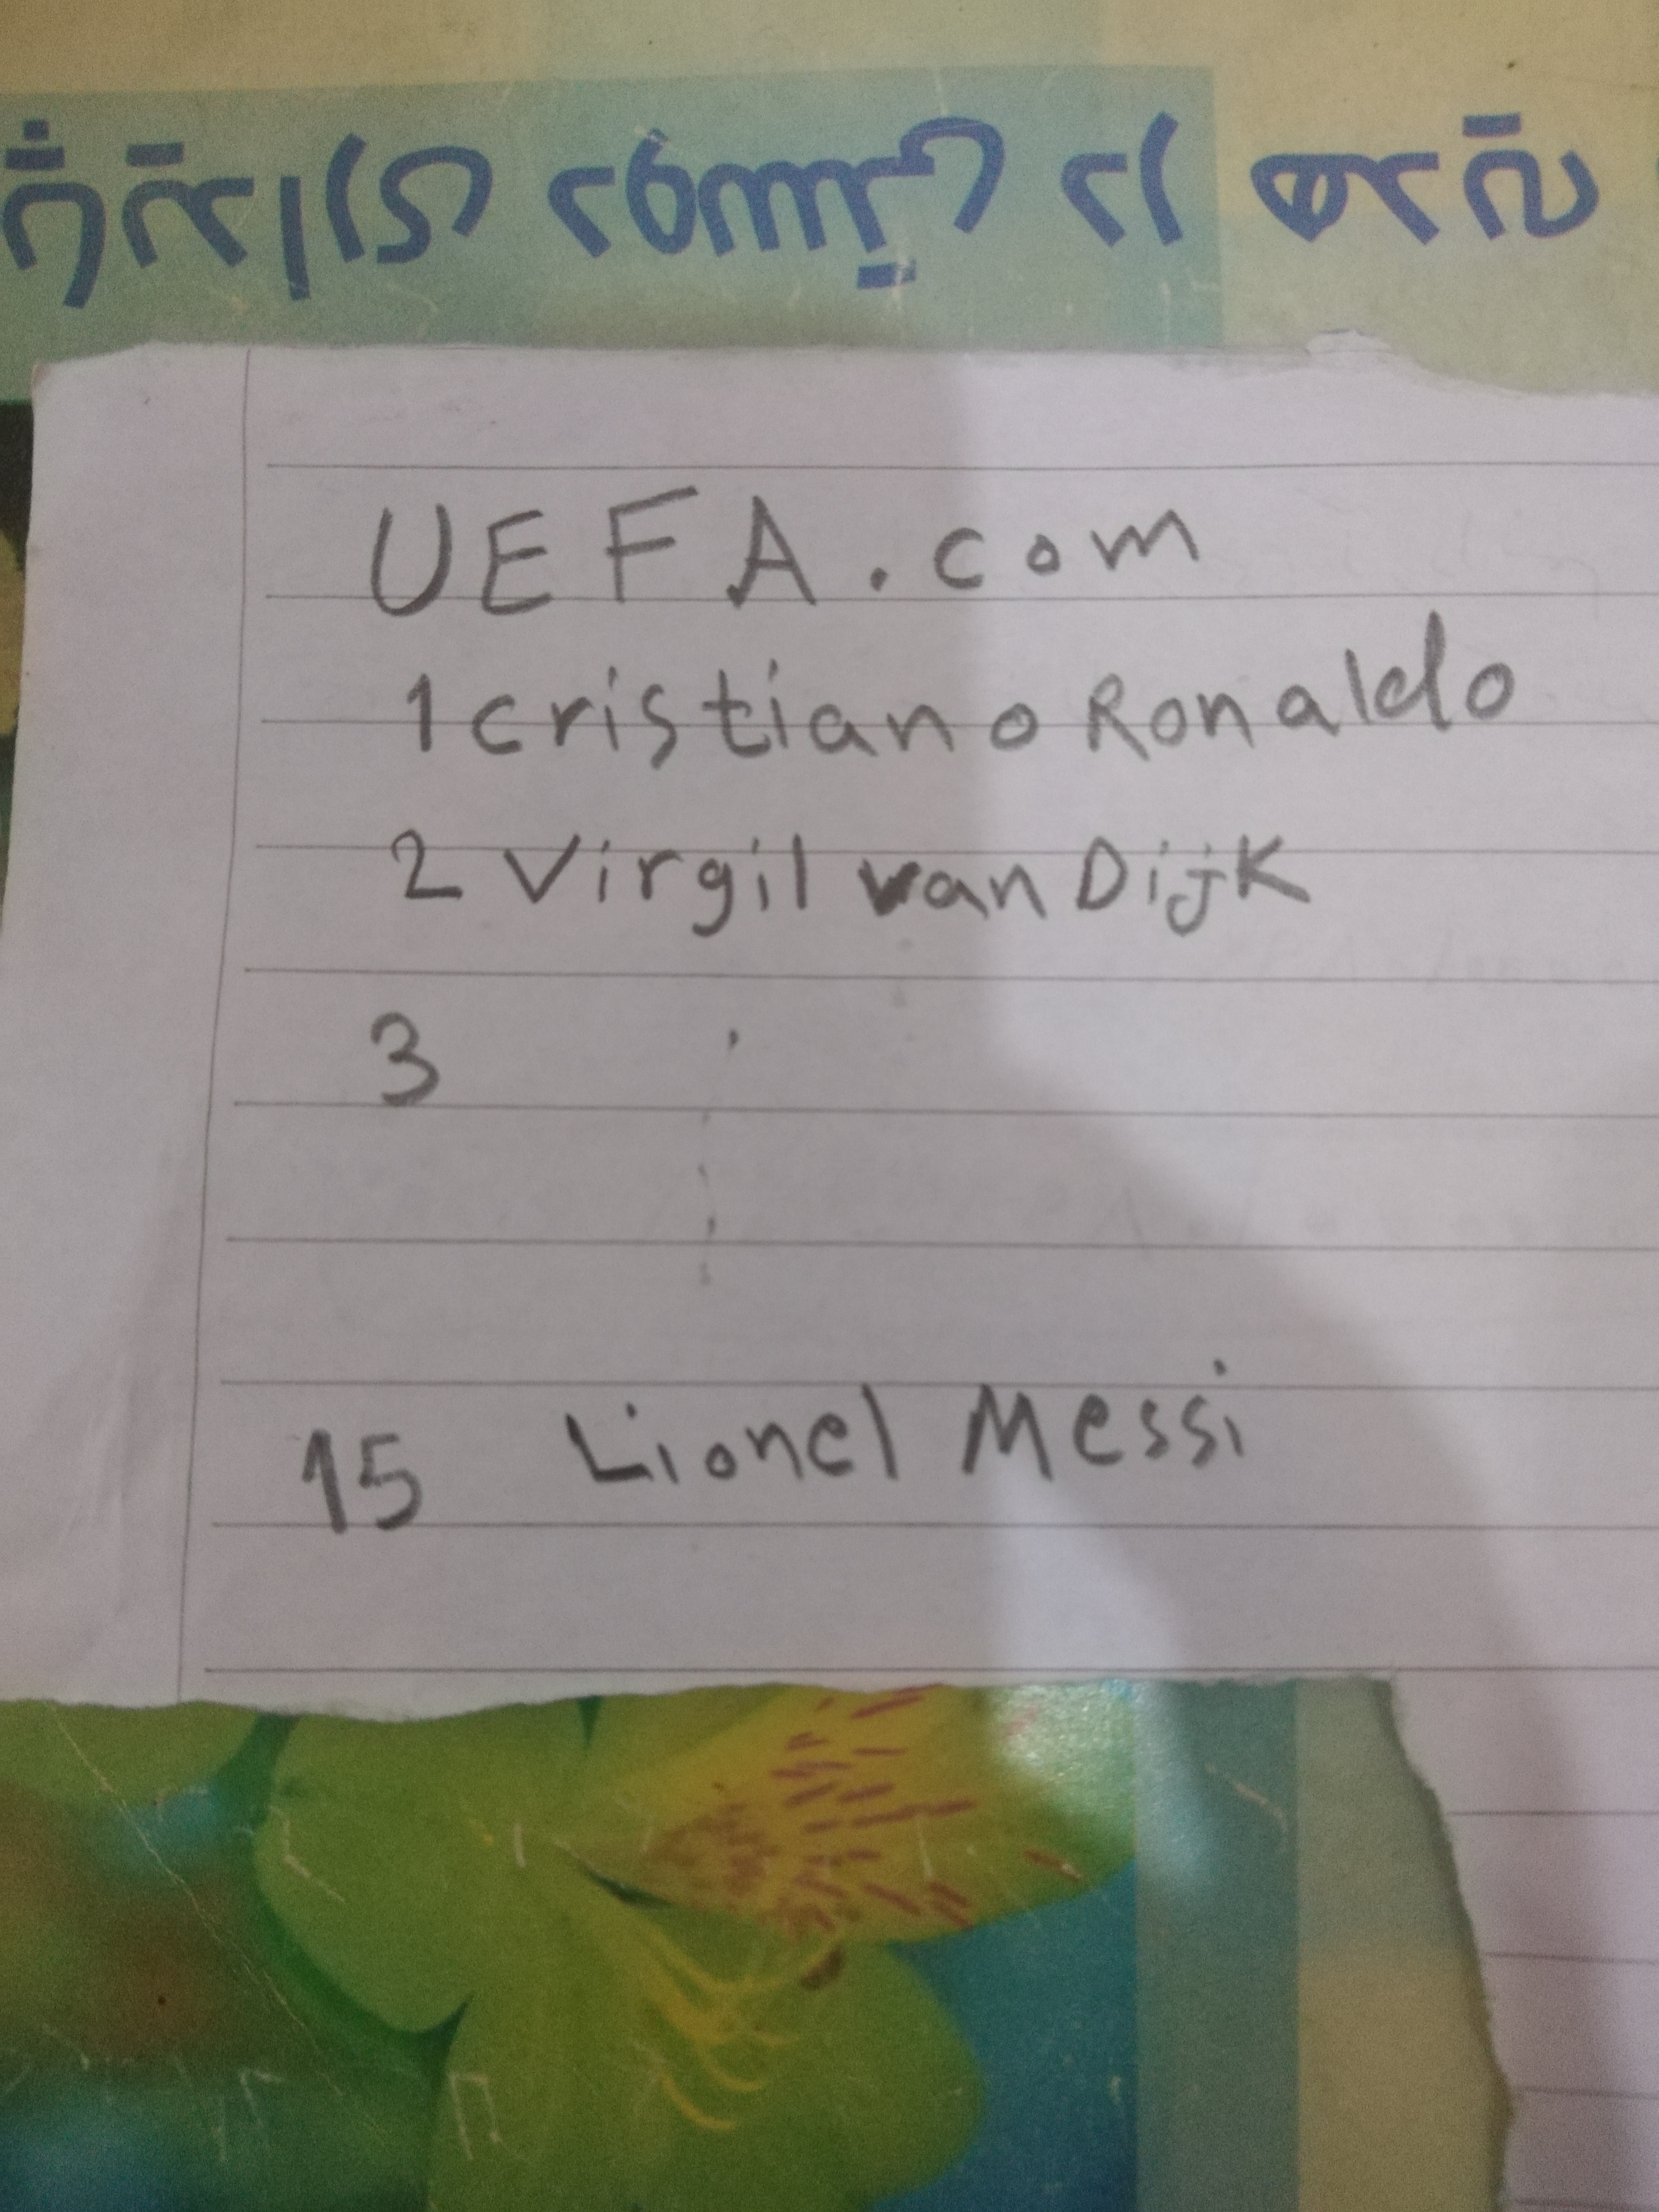 UEFA.com
1 cristiano Ronaldo
2 Virgil van Dijk
3
15 Lionel Messi